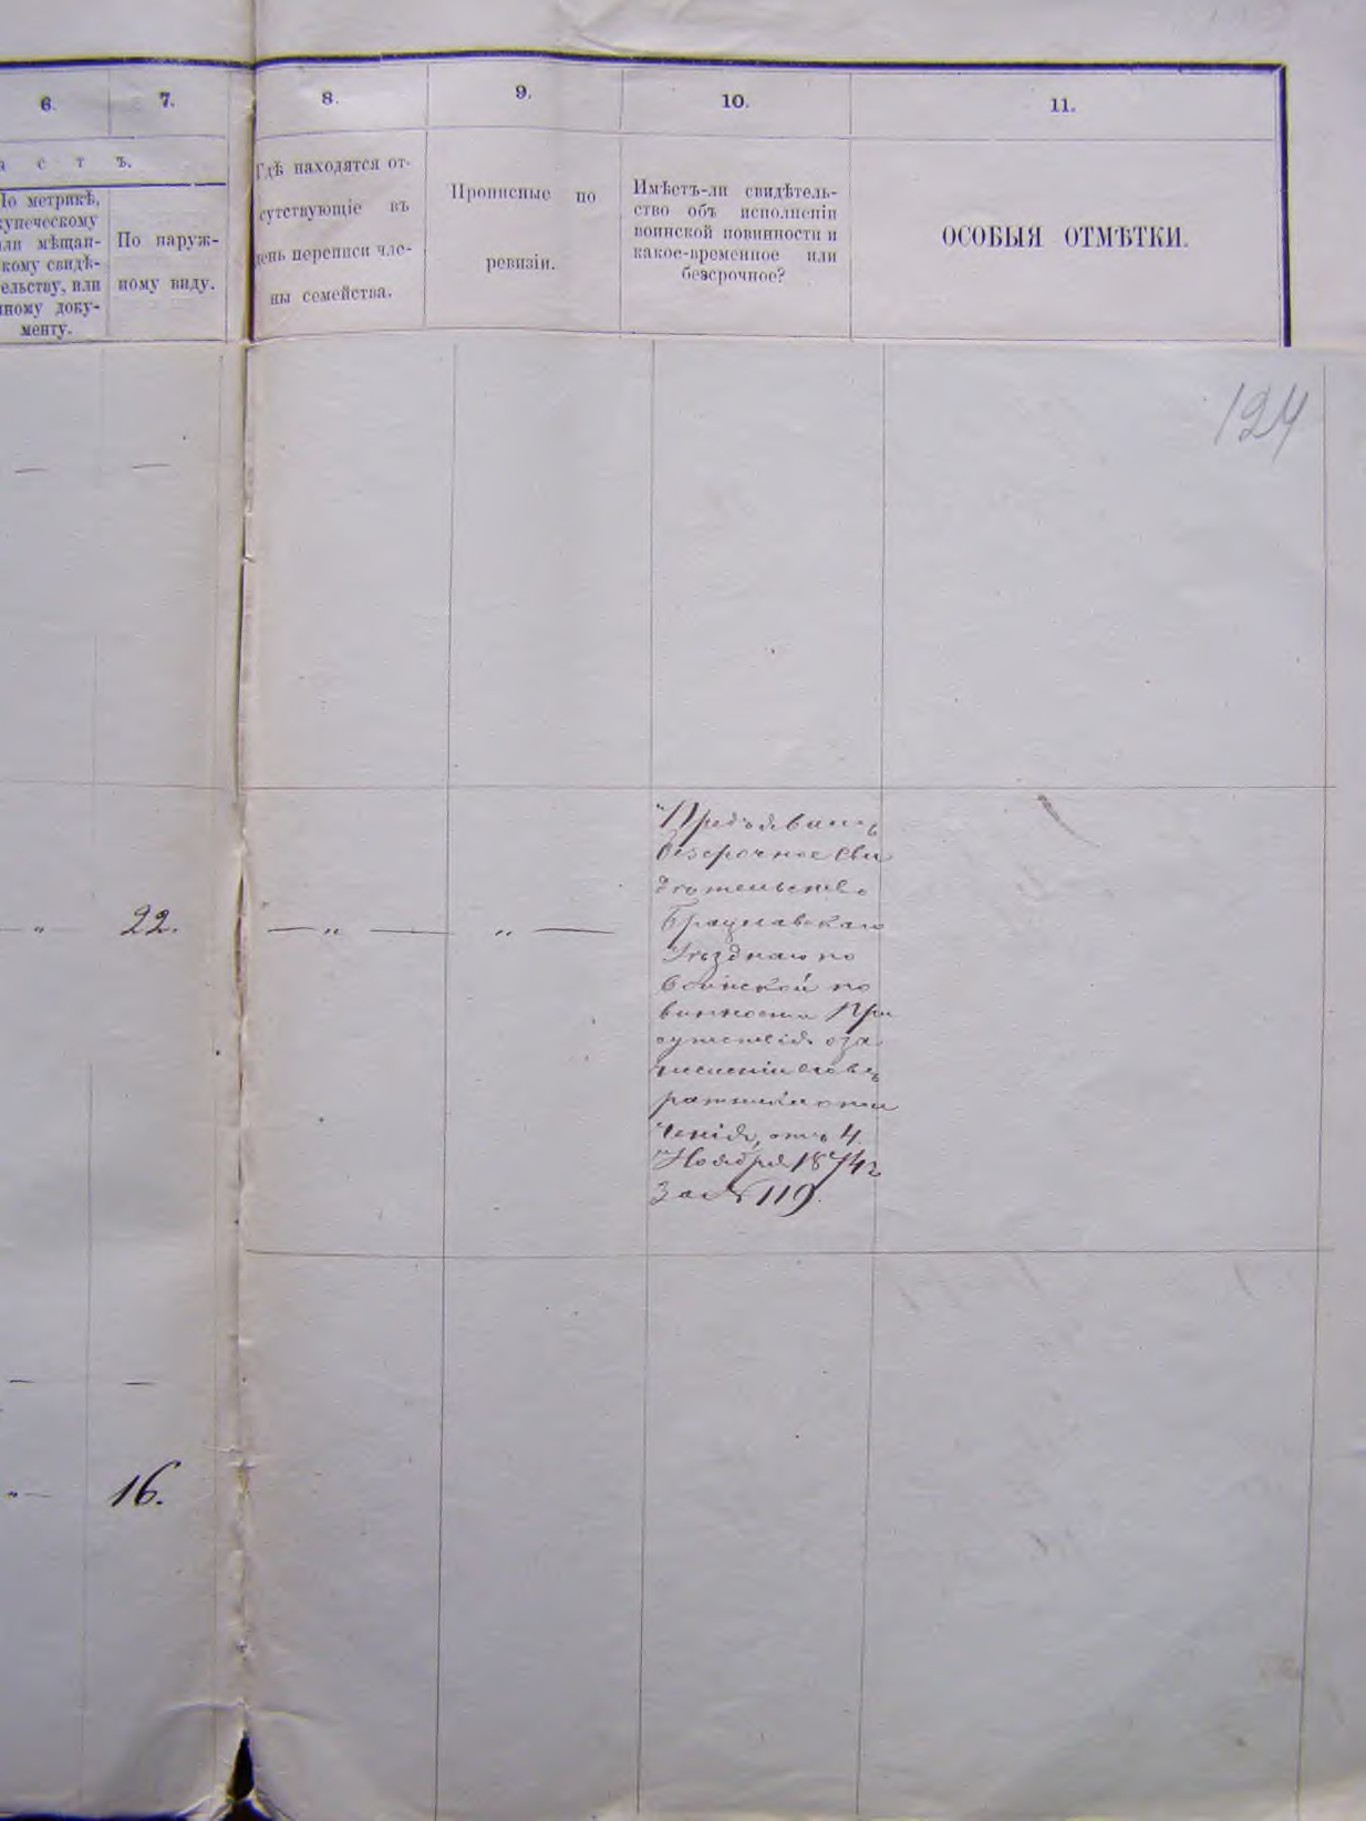 6.
7.
8.
9.
10.
11.
а с т ъ.
По метрикѣ,
купеческому
или мѣщан-
скому свидѣ-
тельству, или
иному доку-
менту.
По наруж-
ному виду.
Гдѣ находятся от-
сутствующіе въ
день переписи чле-
ны семейства.
Прописные по
ревизіи.
Имѣетъ-ли свидѣтель-
ство объ исполненіи
воинской повинности и
какое-временное или
безсрочное?
ОСОБЫЯ ОТМѢТКИ.
124
— —
Предъявилъ
безсрочное сви
дѣтельство
Брацлавскаго
Уѣзднаго по
воинской по
винности При
сутствія о за
численіи его въ
ратники опол
ченія, отъ 4
Ноября 1874 г
За № 119.
— „ 22. — „ — „ —
— —
„ — 16.